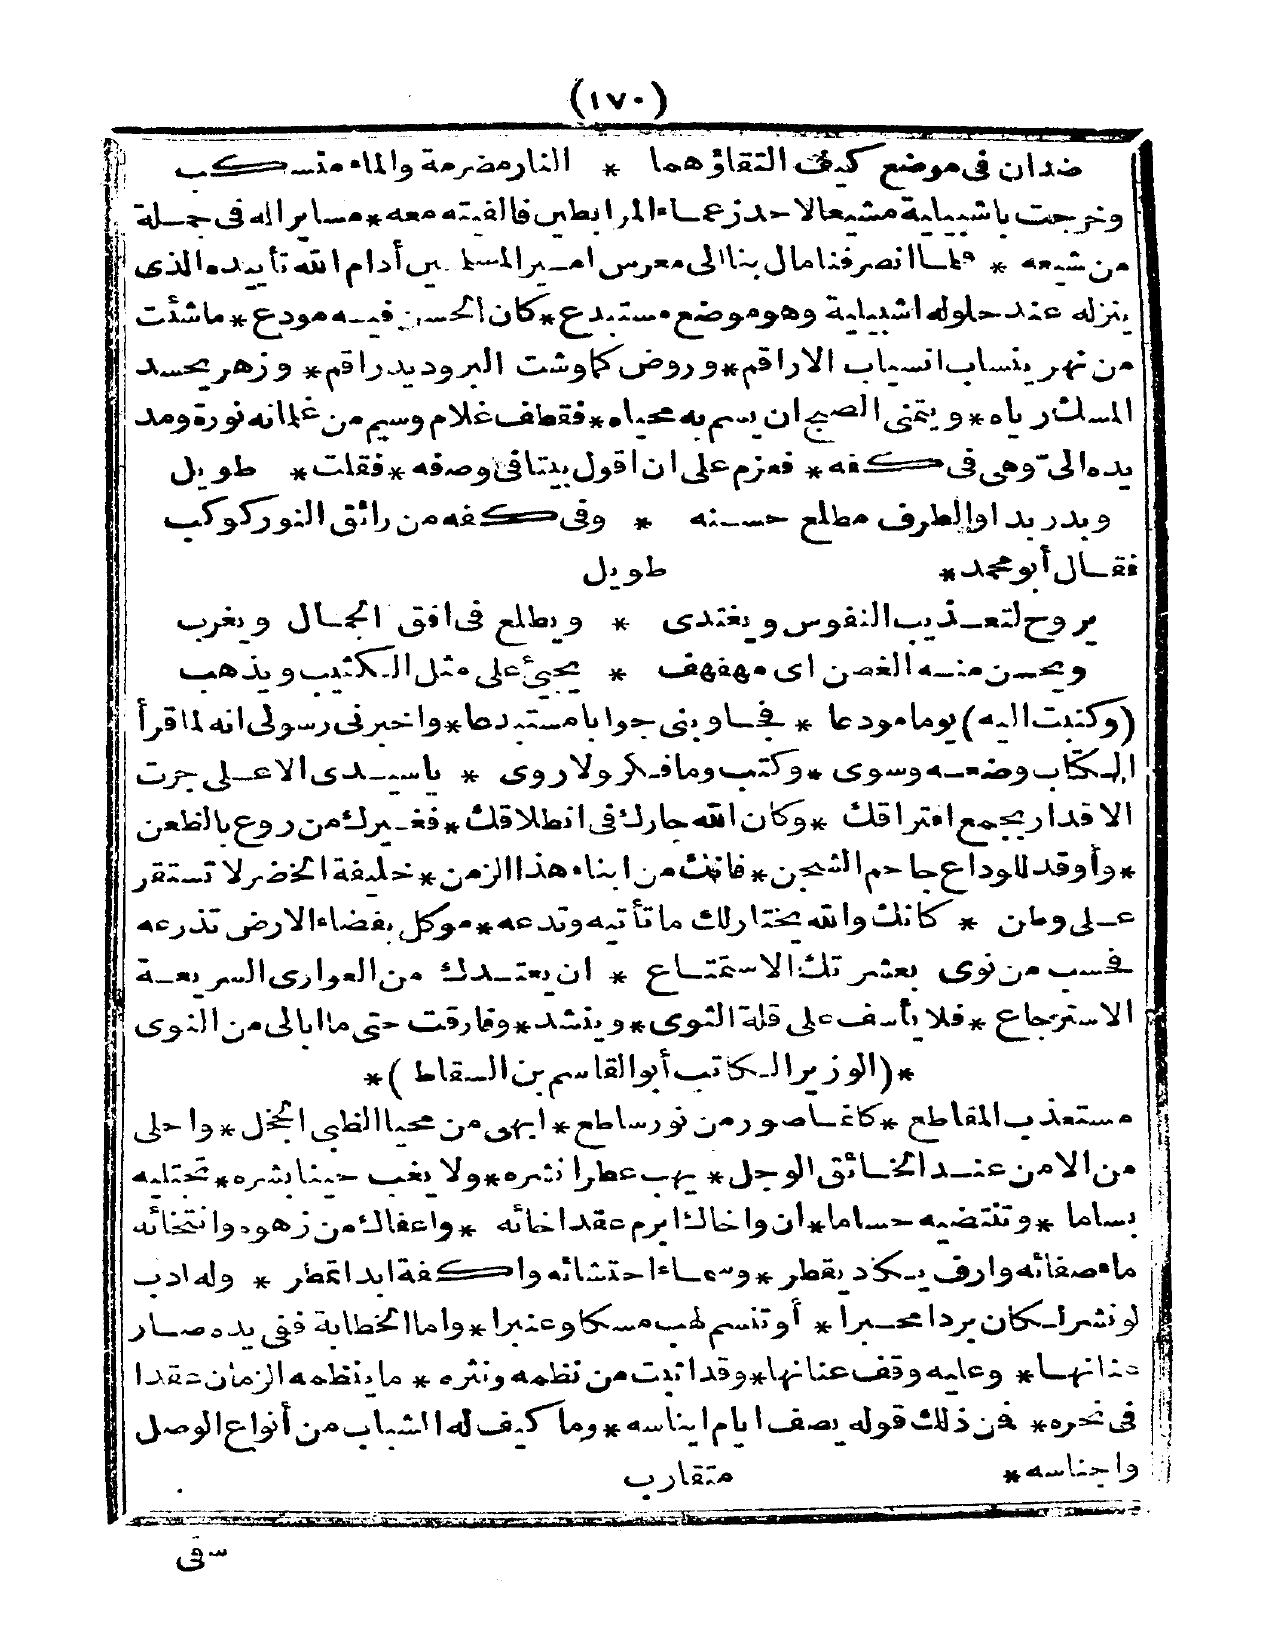 (١٧٠)
ضدان فى موضع كيف التقاؤهما * النار مضرمة والماء منسكب
وخرجت باشبيلية مشيعا لاحد زعماء المرابطين فالفيته معه * مساير اله فى جملة
من شيعه * فلما انصرفنا مال بنا الى معرس امير المسلمين أدام الله تأييده الذى
ينزله عند حلوله اشبيلية وهو موضع مستبدع * كان الحسن فيه مودع * ما شئت
من نهر ينساب انسياب الاراقم * وروض كما وشت البرود يد راقم * وزهر يحسد
المسك رياه * ويتمنى الصبح ان يسم به محياه * فقطف غلام وسيم من غلمانه نورة ومد
يده الى وهى فى كفه * فعزم على ان اقول بيتا فى وصفه * فقلت * طويل
وبدر بدا والطرف مطلع حسنه * وفى كفه من رائق النور كوكب
فقال أبو محمد * طويل
يروح لتعذيب النفوس ويغتدى * ويطلع فى افق الجمال ويغرب
ويحسن منه الغصن اى مهفهف * يجئ على مثل الكثيب ويذهب
(وكتبت اليه) يوما مودعا * فجاوبنى جوابا مستبدعا * واخبرنى رسولى انه لما قرأ
الكتاب وضعه وسوى * وكتب وما فكر ولا روى * ياسيدى الاعلى جرت
الاقدار بجمع افتراقك * وكان الله جارك فى انطلاقك * فغيرك من روع بالظعن
* وأوقد للوداع جاحم الشجن * فانك من ابناء هذا الزمن * خليفة الخضر لا تستقر
على وطن * كانك والله يختار لك ما تأتيه وتدعه * موكل بفضاء الارض تذرعه
فحسب من نوى بعشرتك الاستمتاع * ان يعتدك من العوارى السريعة
الاسترجاع * فلا يأسف على قلة الثوى * وينشد * وفارقت حتى ما ابالى من النوى
* (الوزير الكاتب أبو القاسم بن السقاط) *
مستعذب المقاطع * كانما صور من نور ساطع * ابهى من محيا الظبى الخجل * واحلى
من الامن عند الخائف الوجل * يهب عطرا نشره * ولا يغب حينا بشره * تجتليه
بساما * وتنتضيه حساما * ان واخاك ابرم عقد اخائه * واعفاك من زهوه وانتخائه
ماء صفائه وارف يكاد يقطر * وسماء احتشائه واكفة ابدا تمطر * وله ادب
لو نشر لكان بردا محبرا * أو تنسم لهب مسكا وعنبرا * واما الخطابة ففى يده صار
عنانها * وعليه وقف عنانها * وقد اثبت من نظمه ونثره * ما ينظمه الزمان عقدا
فى نحره * فمن ذلك قوله يصف ايام ايناسه * وما كيف له الشباب من أنواع الوصل
واجناسه * متقارب
سقى